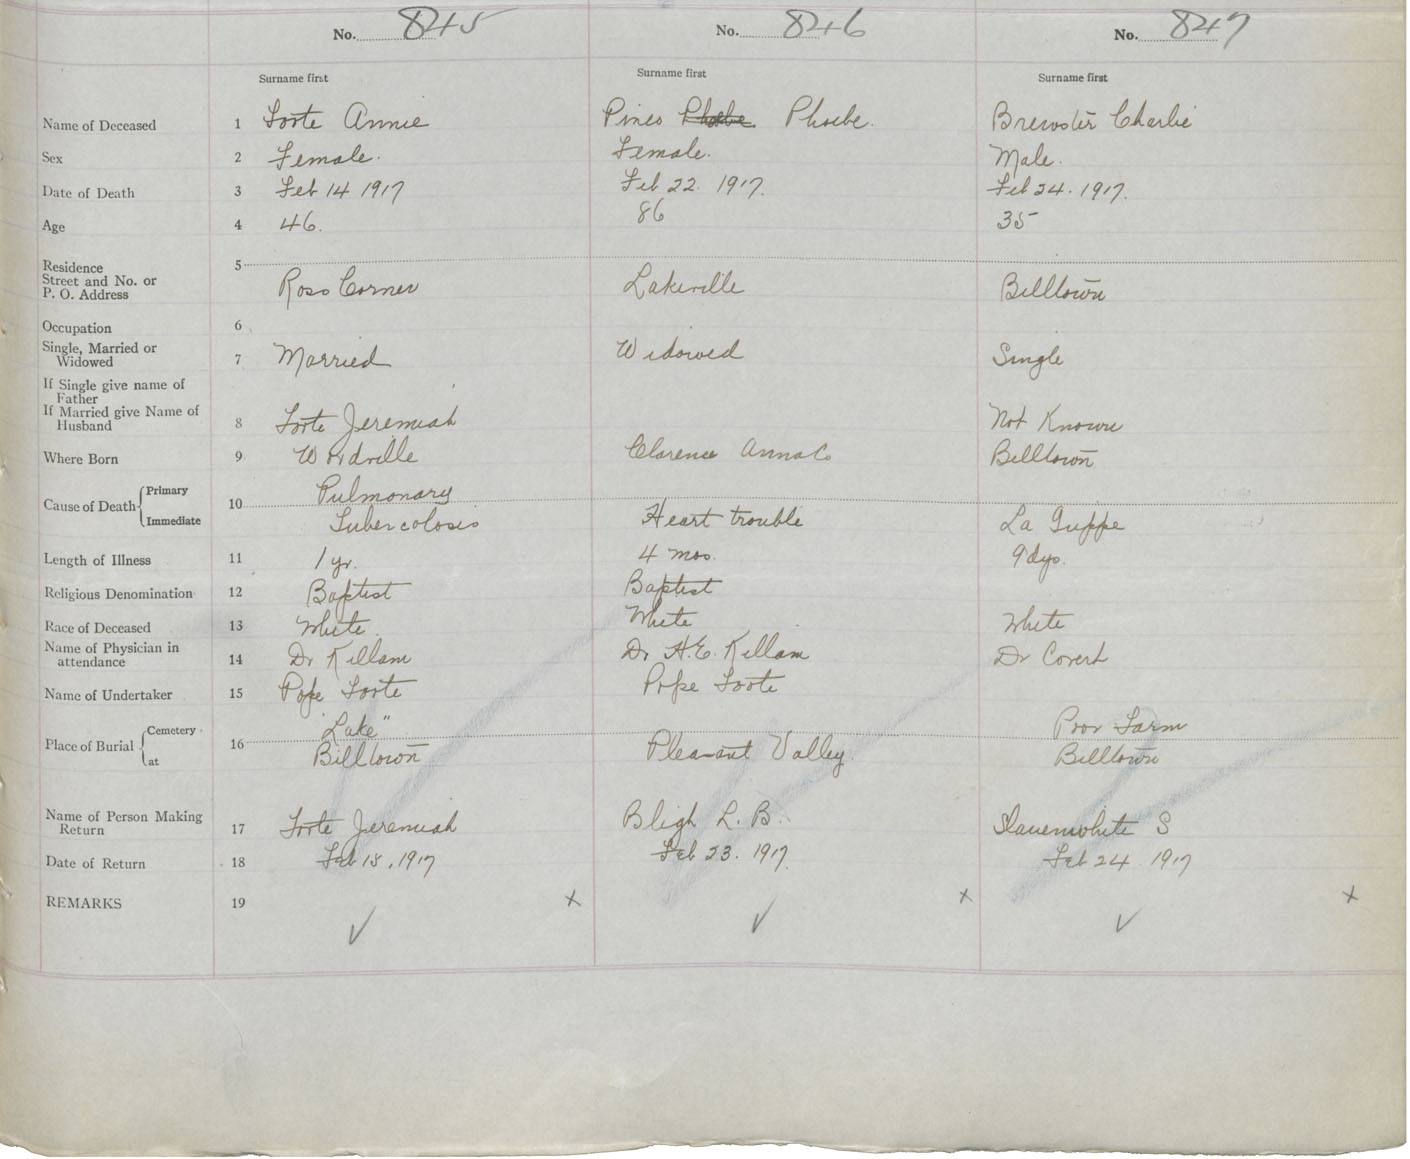 No. 845 No. 846 No. 847
Surname first Surname first Surname first
Name of Deceased 1 Foote Annie Pineo Phoebe Phoebe. Brewster Charlie
Sex 2 Female. Female. Male.
Date of Death 3 Feb 14 1917 Feb 22. 1917. Feb 24. 1917.
Age 4 46. 86 35
Residence 5
Street and No. or
P. O. Address Ross Corner Lakeville Billtown
Occupation 6
Single, Married or
Widowed 7 Married Widowed Single
If Single give name of
Father
If Married give Name of
Husband 8 Foote Jeremiah Not Known
Where Born 9 Woodville Clarence Anna Co Billtown
Cause of Death Primary 10 Pulmonary
Immediate Tubercolosis Heart trouble La Grippe
Length of Illness 11 1 yr. 4 mos. 9 dys.
Religious Denomination 12 Baptist Baptist
Race of Deceased 13 White. White White
Name of Physician in
attendance 14 Dr Killam Dr H.E. Killam Dr Covert
Name of Undertaker 15 Pope Foote Pope Foote
Place of Burial Cemetery 16 "Lake" Poor Farm
at Billtown Pleasant Valley. Billtown
Name of Person Making
Return 17 Foote Jeremiah Bligh L. B. Slauenwhite S
Date of Return 18 Feb 15, 1917 Feb 23. 1917. Feb 24 1917
REMARKS 19 x x x
✓ ✓ ✓